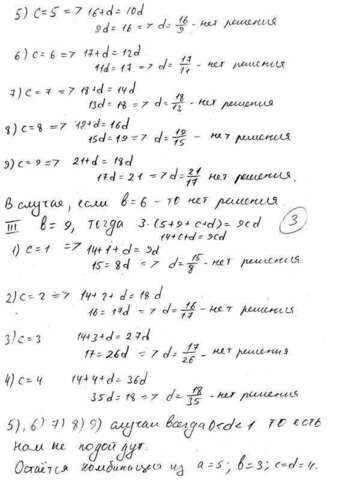 5) c=5 => 16+d=10d
9d=16 => d=16/9 - нет решения
6) c=6 => 17+d=12d
11d=17 => d=17/11 - нет решения
7) c=7 => 18+d=14d
13d=18 => d=18/13 - нет решения
8) c=8 => 19+d=16d
15d=19 => d=19/15 - нет решения
9) c=9 => 21+d=18d
17d=21 => d=21/17 нет решения.
В случае, если b=6 - то нет решения.
III b=9, тогда 3·(5+9+c+d)=9cd
3
14+c+d=9cd
1) c=1 => 14+1+d=9d
15=8d => d=15/8 - нет решения
2) c=2 => 14+2+d=18d
16=17d => d=16/17 - нет решения
3) c=3 14+3+d=27d
17=26d => d=17/26 - нет решения
4) c=4 14+4+d=36d
35d=18 => d=18/35 - нет решения
5), 6) 7) 8) 9) случаи всегда 0<d<1 то есть
нам не подойдут.
Остаётся комбинация из a=5; b=3; c=d=4.